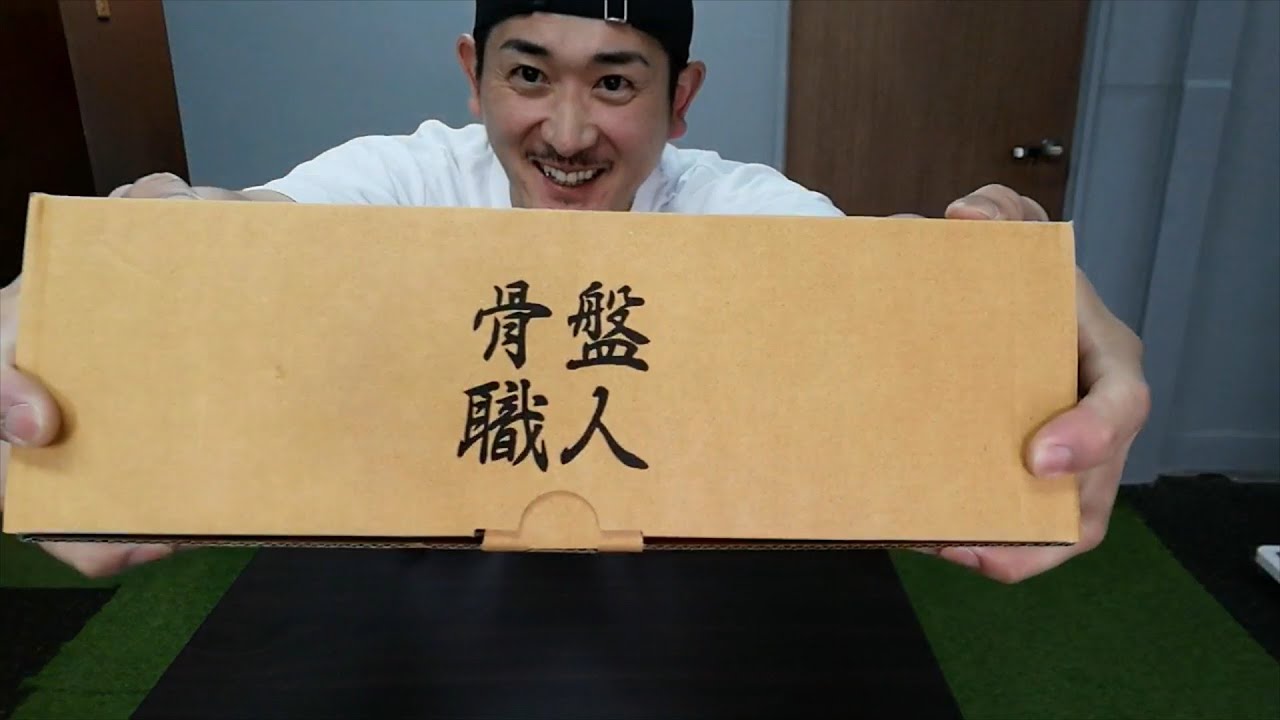 骨盤
職人